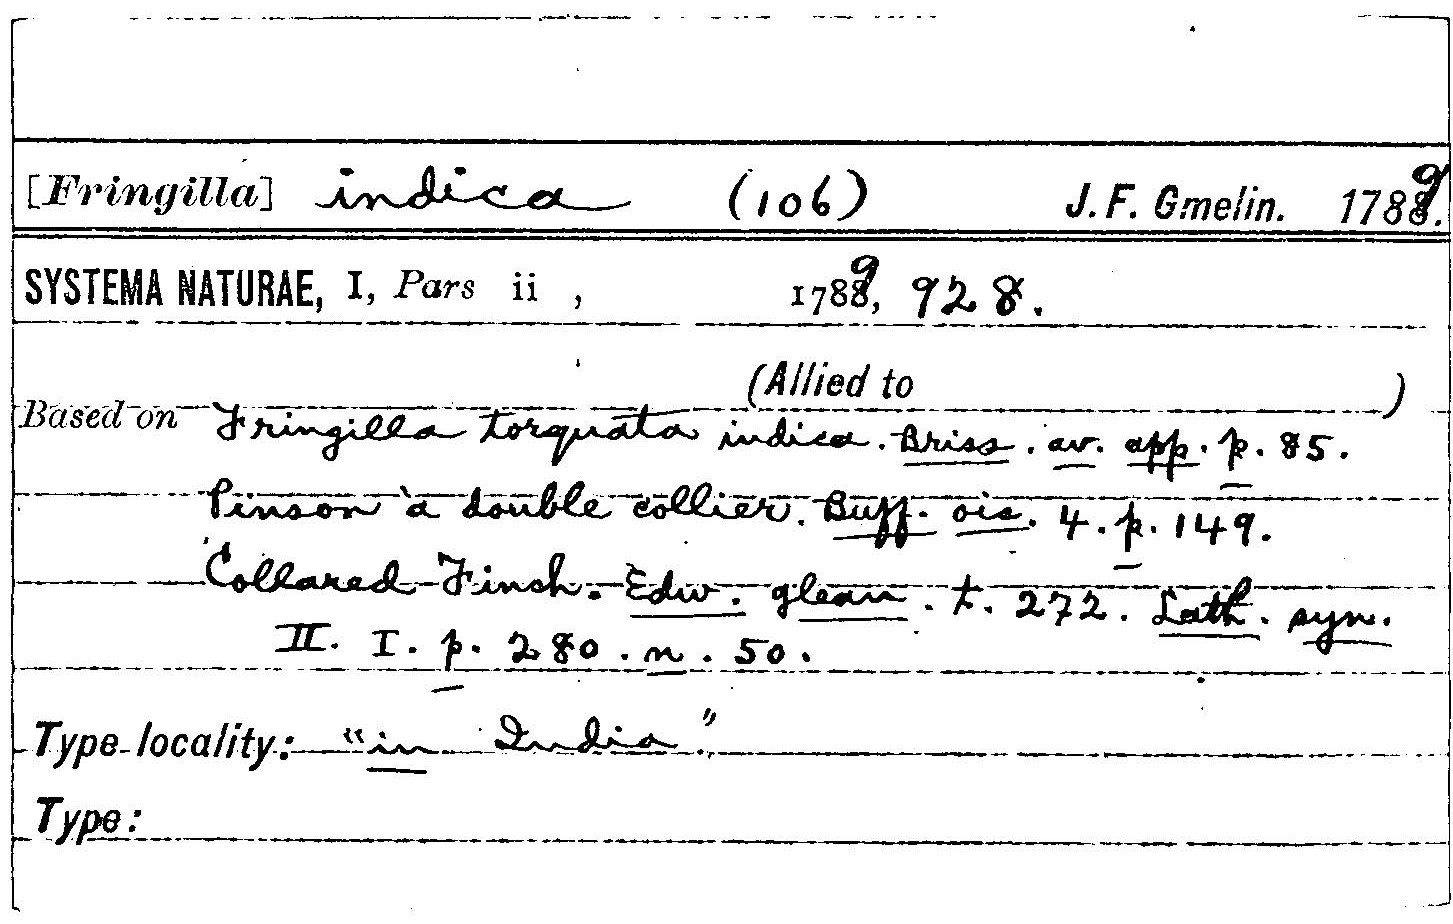 [Fringilla] indica (106) J. F. Gmelin. 1789.
SYSTEMA NATURAE, I, Pars ii , 1789, 928.
(Allied to )
Based on Fringilla torquata indica. Briss. av. app. p. 85.
Pinson à double collier. Buff. ois. 4. p. 149.
Collared Finch. Edw. glean. t. 272. Lath. syn.
II. I. p. 280. n. 50.
Type locality: "in India"
Type: